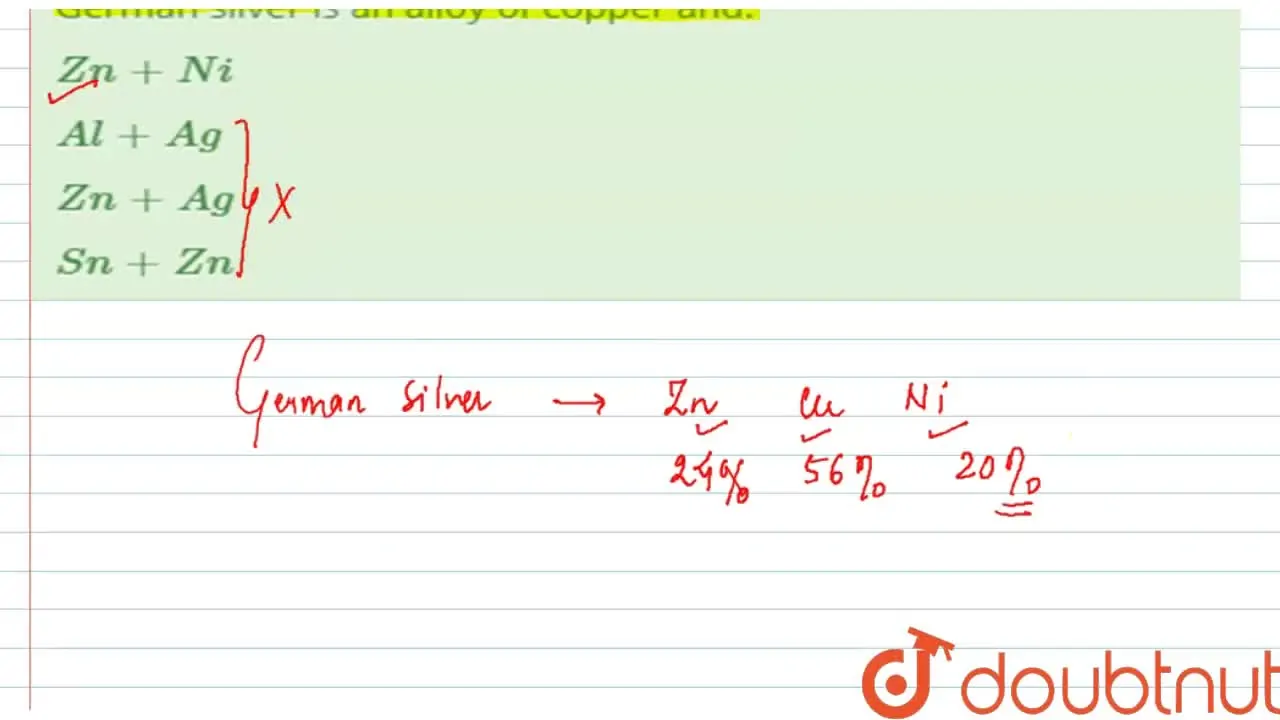 German silver is an alloy of copper and:
Zn + Ni
Al + Ag
Zn + Ag
X
Sn + Zn
German silver → Zn Cu Ni
24% 56% 20%
doubtnut